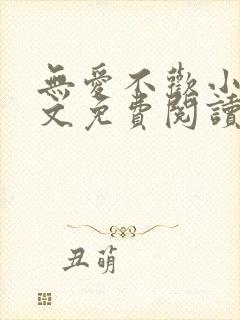 無愛不歡小
文免費閱讀
丑萌